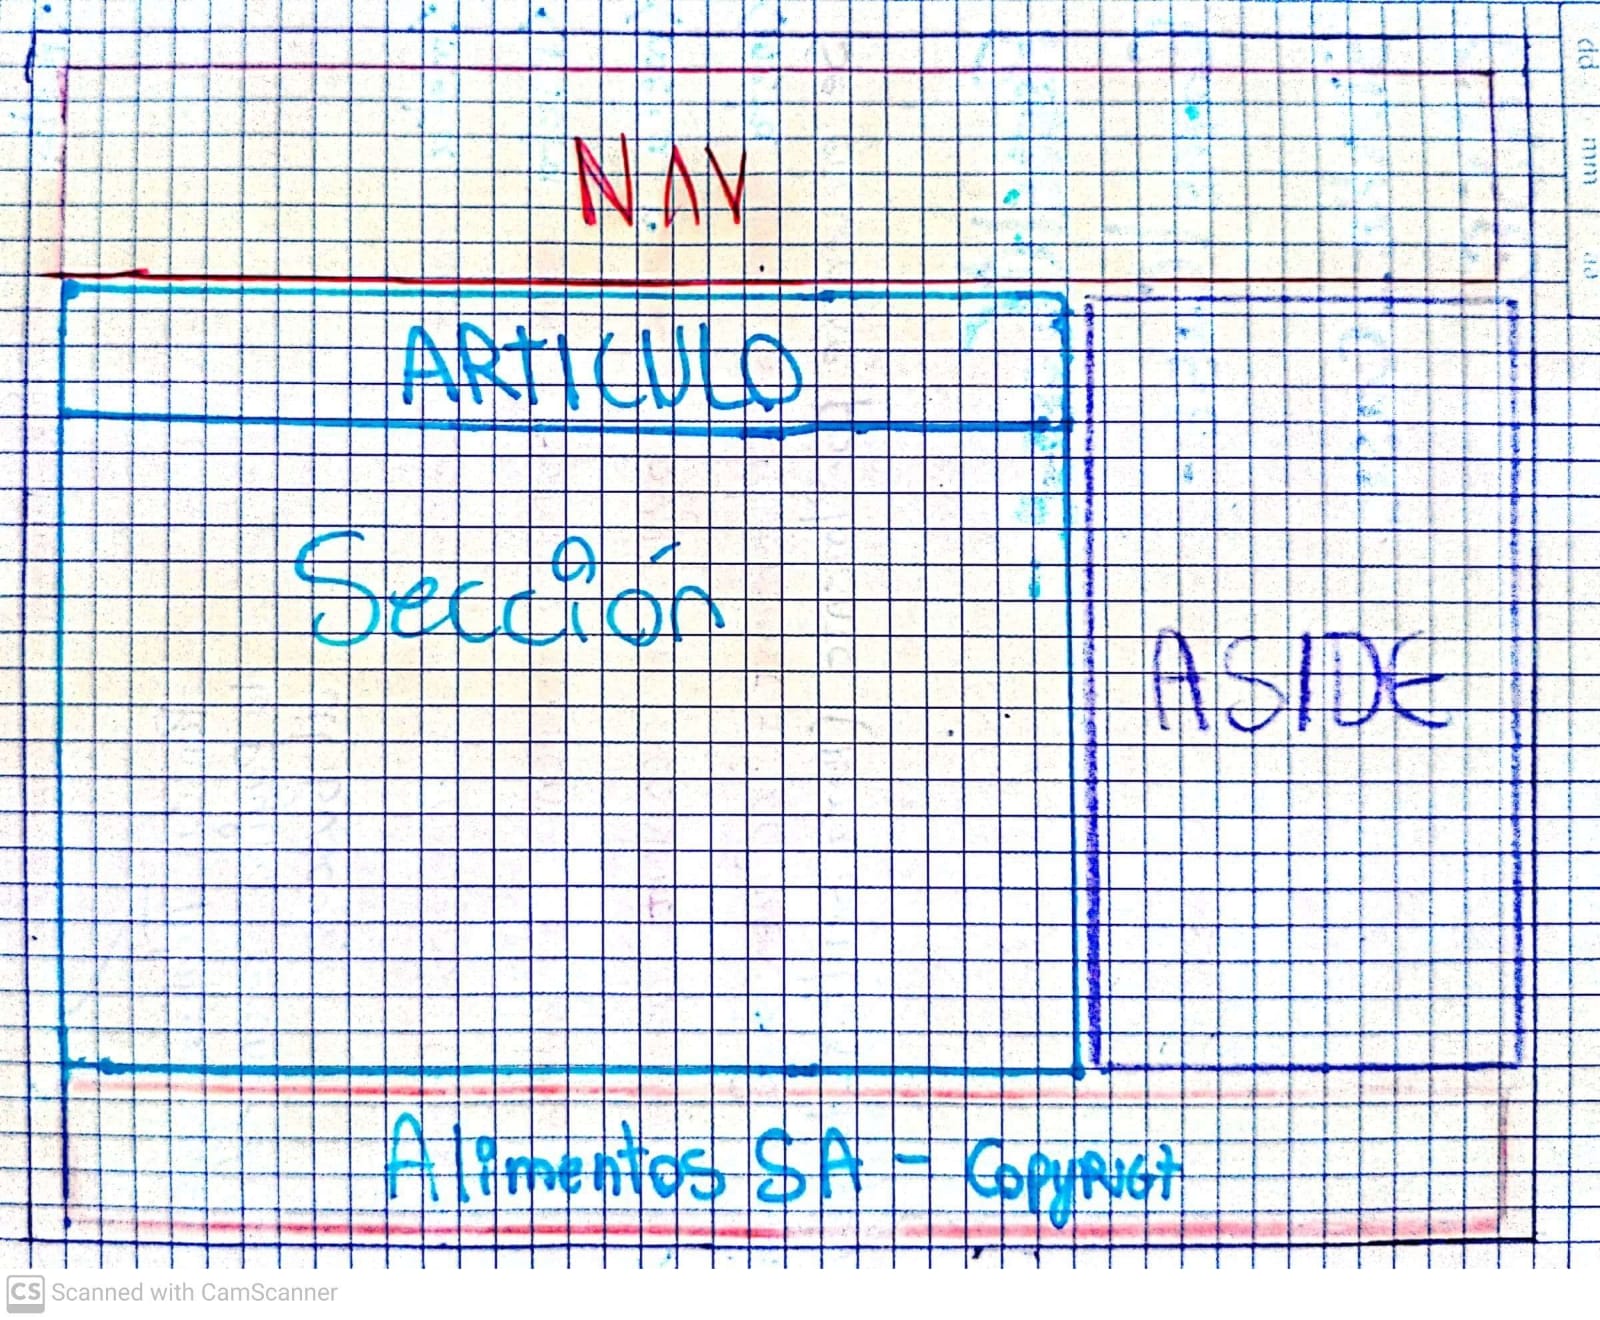 NAV
ARTICULO
Sección
ASIDE
Alimentos SA - Copyrigt
CS Scanned with CamScanner